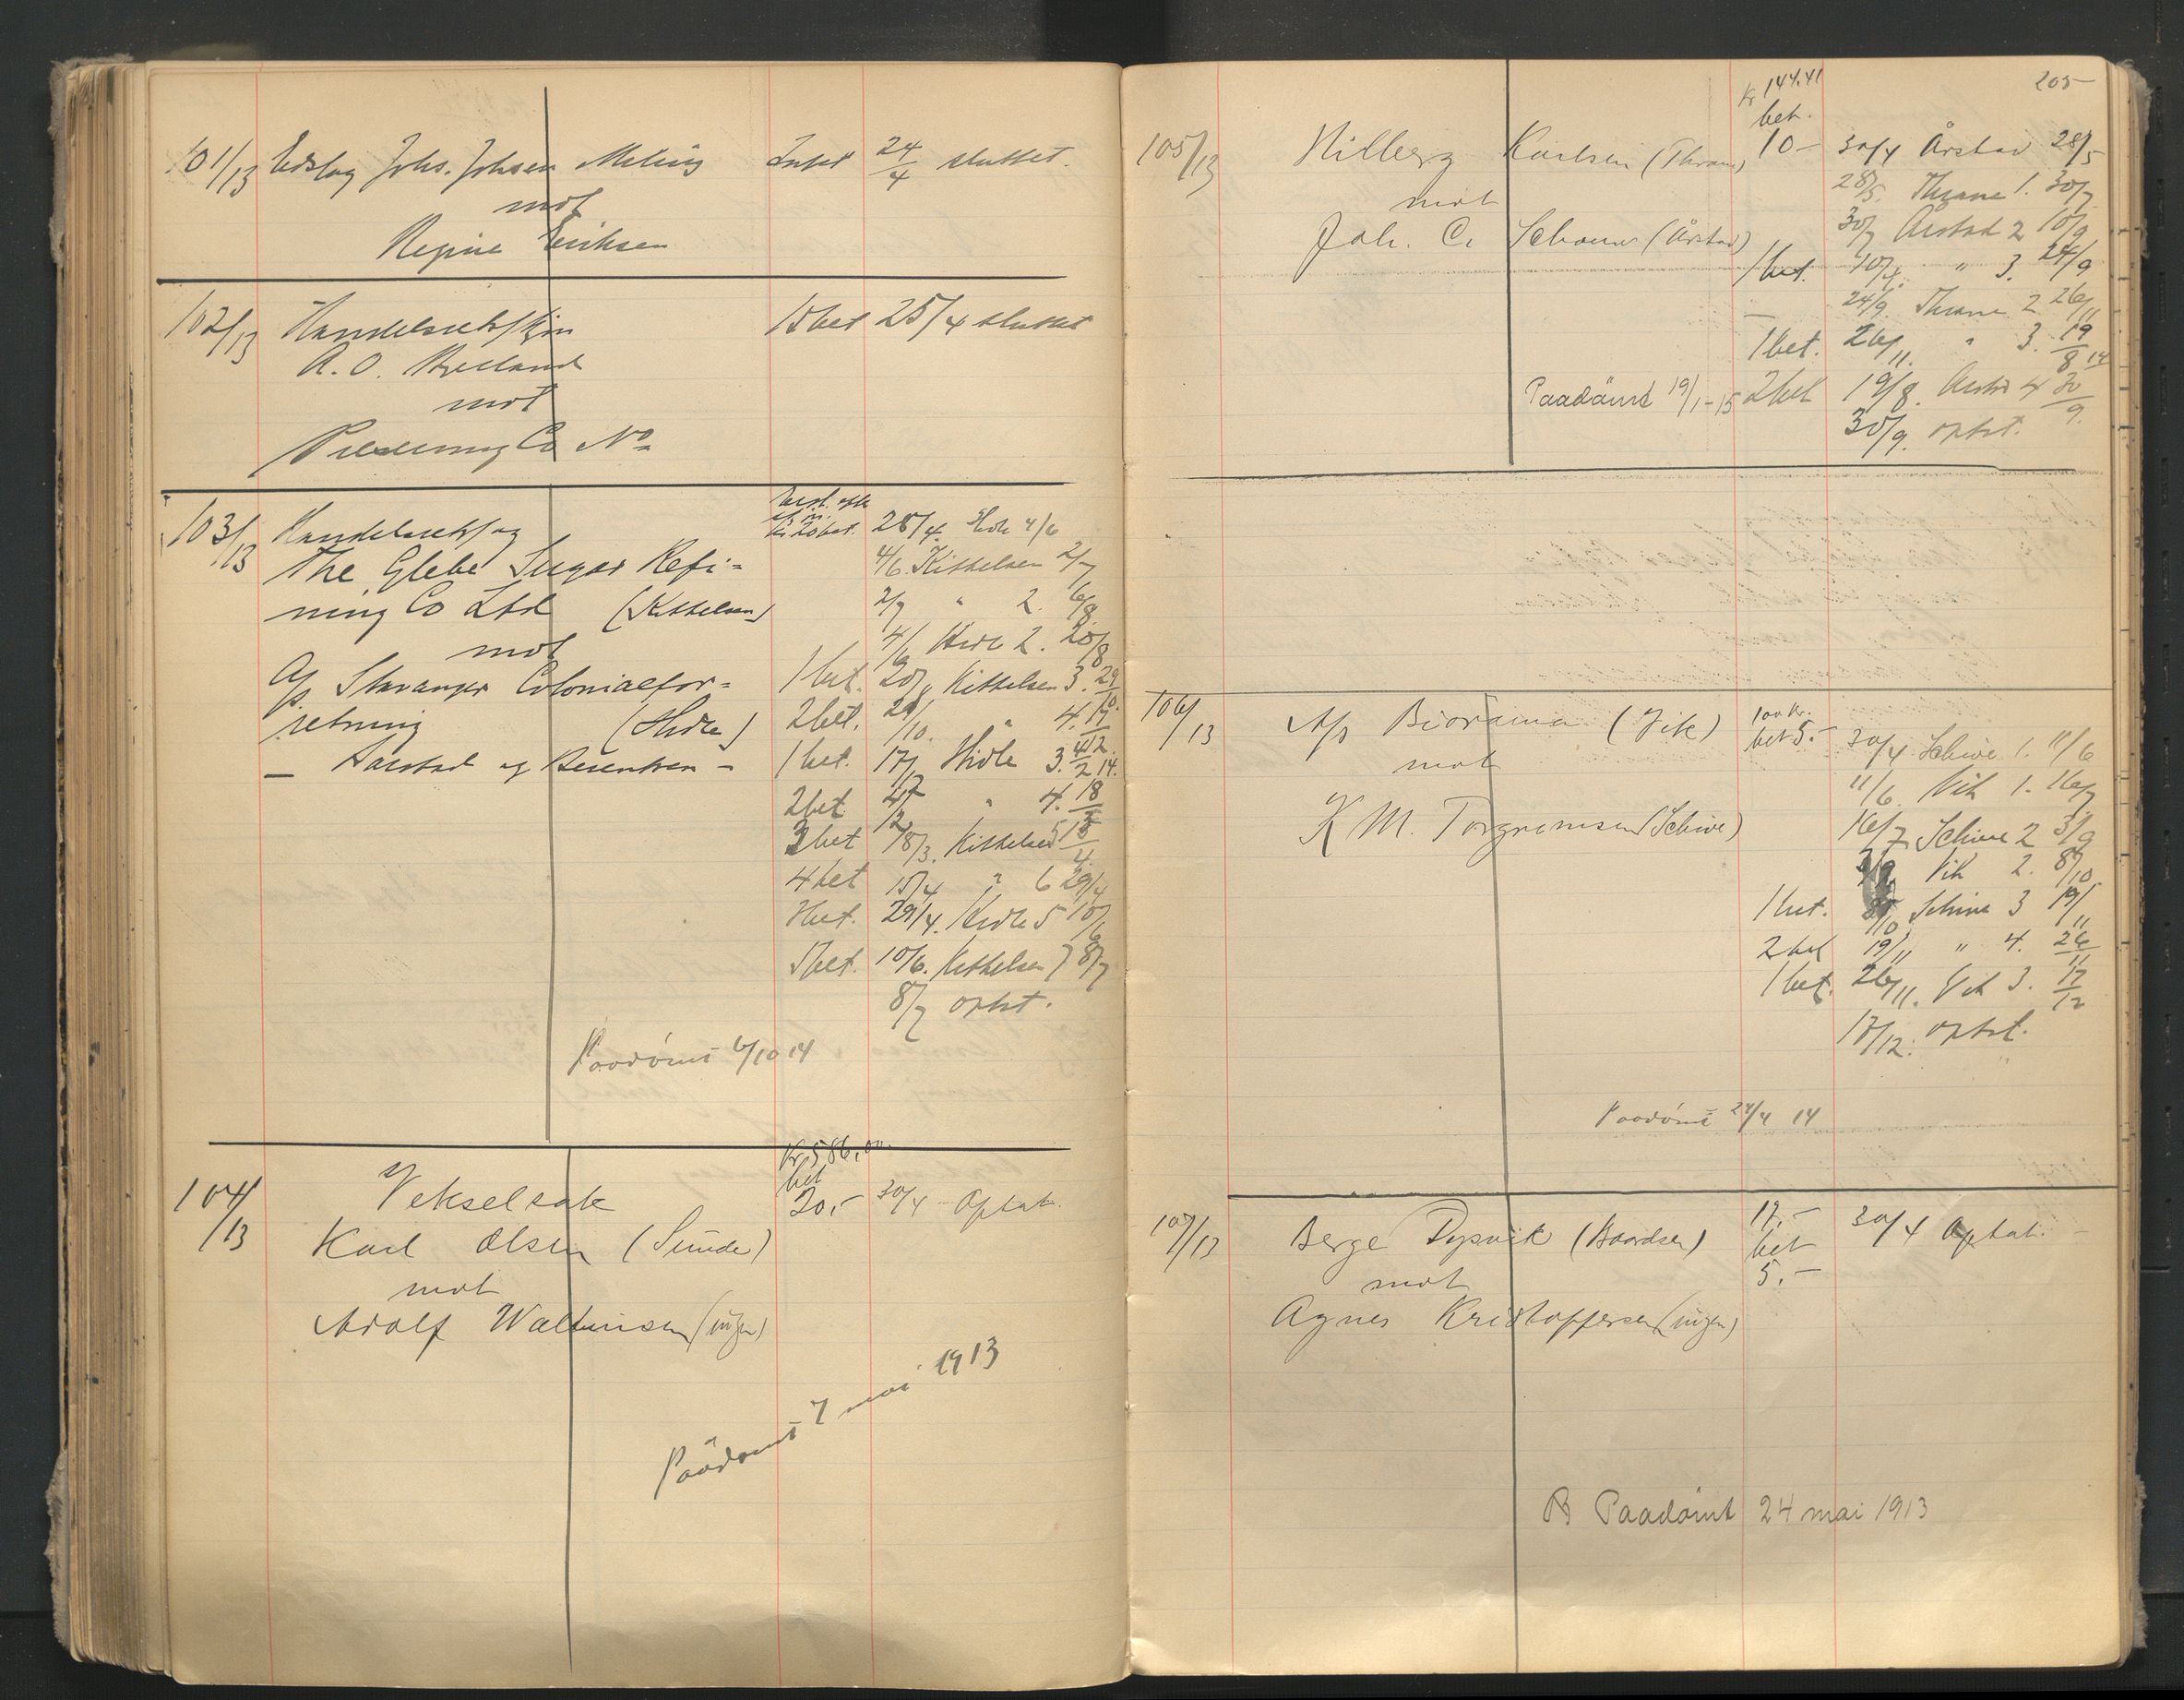 101/13 Edslag Johs. Johsen Meling 24/4 sluttet.
mot
Regine Eriksen
102/13 Handelsretsskjøn 15 bet 25/4 sluttet
A. O.
mot
Co No
103/13 Handelsretssag 28/4. Hidle 4/6
The Glebe Sugar Refi- 4/6. Kittelsen 2/7
ning Co Ltd (Kittelsen) 2/7 " 2. 6/8
mot Hidle 2. 20/8
A/S Stavanger Colonialfor- 1 bet. 20/8 Kittelsen 3. 29/10
retning (Hidle) 2 bet. 29/10. " 4. 17/12
— Aarstad og Berentsen — 1 bet. 17/12 Hidle 3. 4/2 14.
2 bet 4/2 " 4. 18/3
3 bet 18/3. Kittelsen 5 15/4.
4 bet 15/4 " 6 29/4
3 bet. 29/4. Hidle 5 10/6
5 bet. 10/6. Kittelsen 7 8/7
8/7 optat.
Paadömt 6/10 14
104/13 Vekselsak Kr. 586,00.
bet
20,- 30/4 Optat.
Karl Olsen (Sunde)
mot
Adolf Waltinsen (ingen)
Paadömt 7 mai 1913
205
105/13 Kr 144.41
bet.
Hilberg Karlsen (Thrane) 10- 30/4 Årstad 28/5
mot 28/5. Thrane 1. 30/7
Joh. C. (Årstad) 30/7 Årstad 2 10/9
1 bet. 10/9. " 3. 24/9
24/9. Thrane 2 26/11
1 bet. 26/11. " 3. 19/8 14
Paadömt 19/1-15 2 bet 19/8. Årstad 4 30/9.
30/9. optat.
106/13 A/S Biorama (Vik) 100 Kr.
bet 5.- 30/4 Schive 1. 11/6
mot 11/6. Vik 1. 16/7
K M. Torgrimsen (Schive) 16/7 Schive 2 3/9
3/9. Vik 2. 8/10
1 bet. 8/10 Schive 3 19/11
2 bet 19/11 " 4. 26/11
1 bet. 26/11. Vik 3. 17/12
17/12. optat.
Paadömt 24/4 14
107/13 Berge Dysvik (Baardsen) 17,- 30/4 Optat.
mot bet
5.-
Agnes Kristoffersen (ingen)
Paadömt 24 mai 1913